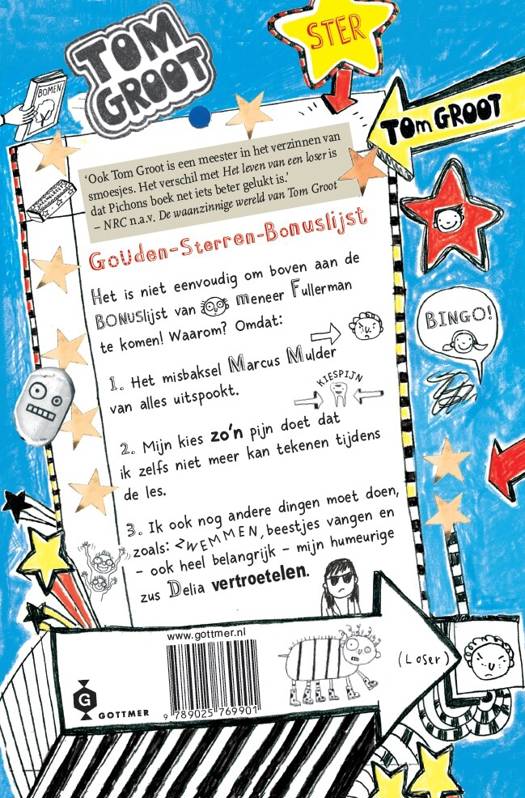 TOM
GROOT
STER
BOMEN
TOM GROOT
'Ook Tom Groot is een meester in het verzinnen van
smoesjes. Het verschil met Het leven van een loser is
dat Pichons boek net iets beter gelukt is.'
– NRC n.a.v. De waanzinnige wereld van Tom Groot
Gouden-Sterren-Bonuslijst
Het is niet eenvoudig om boven aan de
BONUSlijst van meneer Fullerman
te komen! Waarom? Omdat:
BINGO!
1. Het misbaksel Marcus Mulder
van alles uitspookt.
KIESPIJN
2. Mijn kies zo'n pijn doet dat
ik zelfs niet meer kan tekenen tijdens
de les.
3. Ik ook nog andere dingen moet doen,
zoals: ZWEMMEN, beestjes vangen en
– ook heel belangrijk – mijn humeurige
zus Delia vertroetelen.
www.gottmer.nl
G
GOTTMER
9 789025 769901
(Loser)